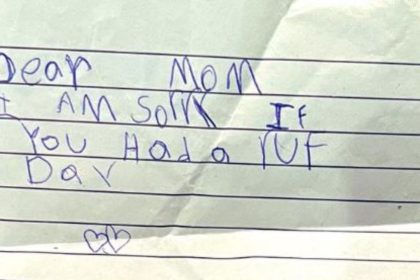 Dear MOM
I AM SORR If
You Had a rUf
Day